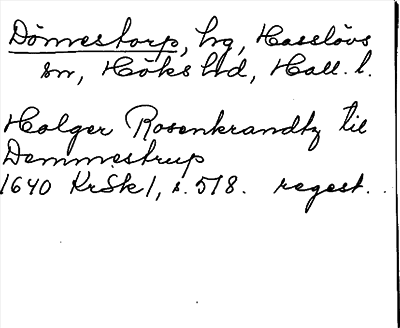 Dömestorp, hg, Hasslövs
sn, Höks hd, Hall. l.
Holger Rosenkrandtz til
Demmestrup
1640 KrSk 1, s. 518. regest.